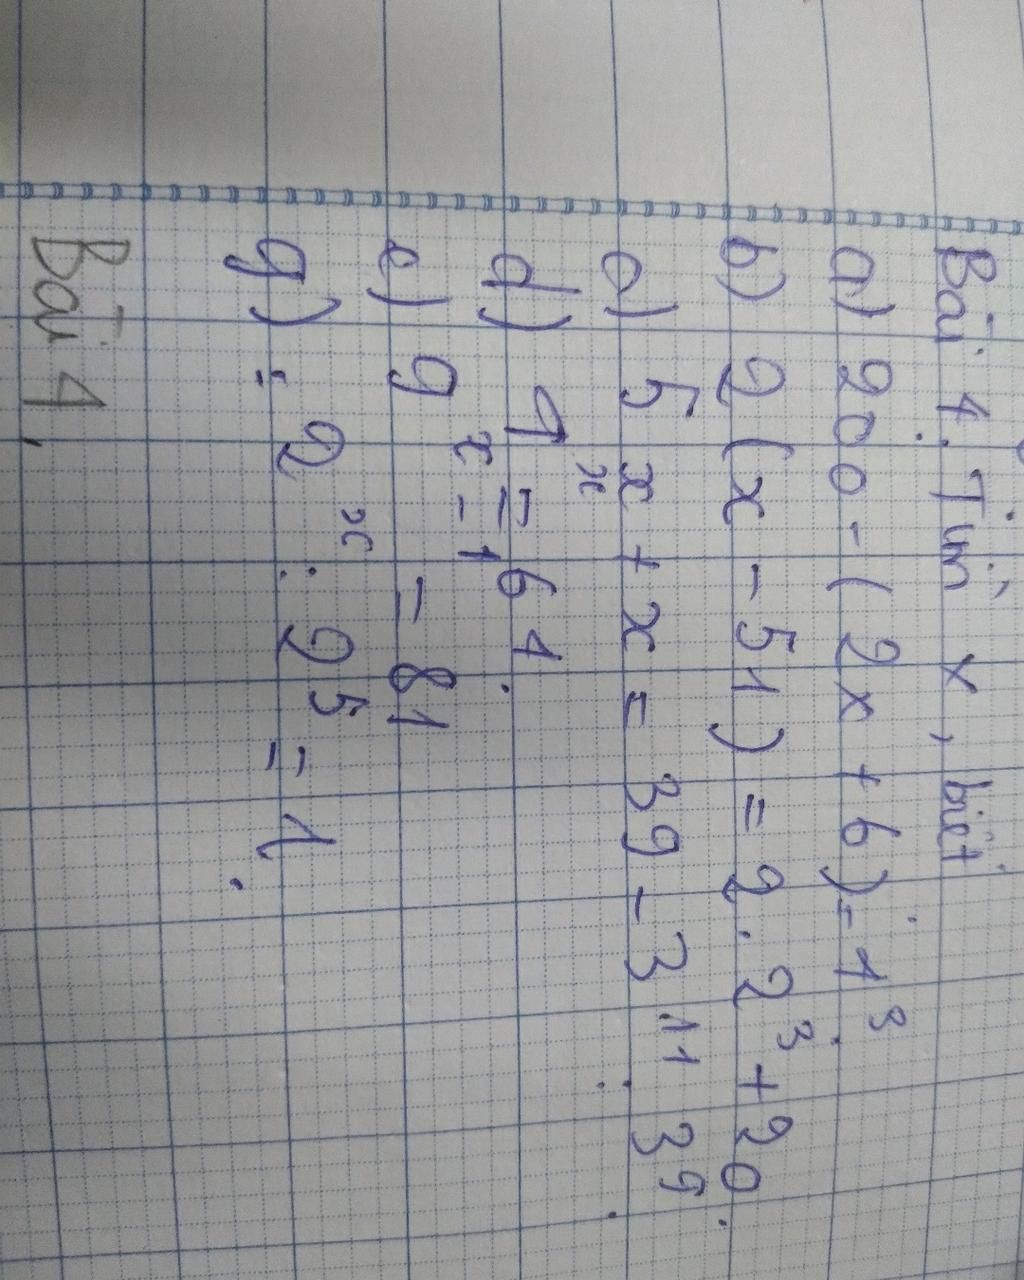 Bài 4. Tìm x, biết
a) 200 - (2x + 6) = 1³.
b) 2(x - 51) = 2.2³ + 20.
c) 5x + x = 39 - 3¹¹ : 3⁹.
d) 9ˣ = 61.
e) 9ˣ⁻¹ = 81
g) = 2ˣ : 2⁵ = 1.
Bài 1,